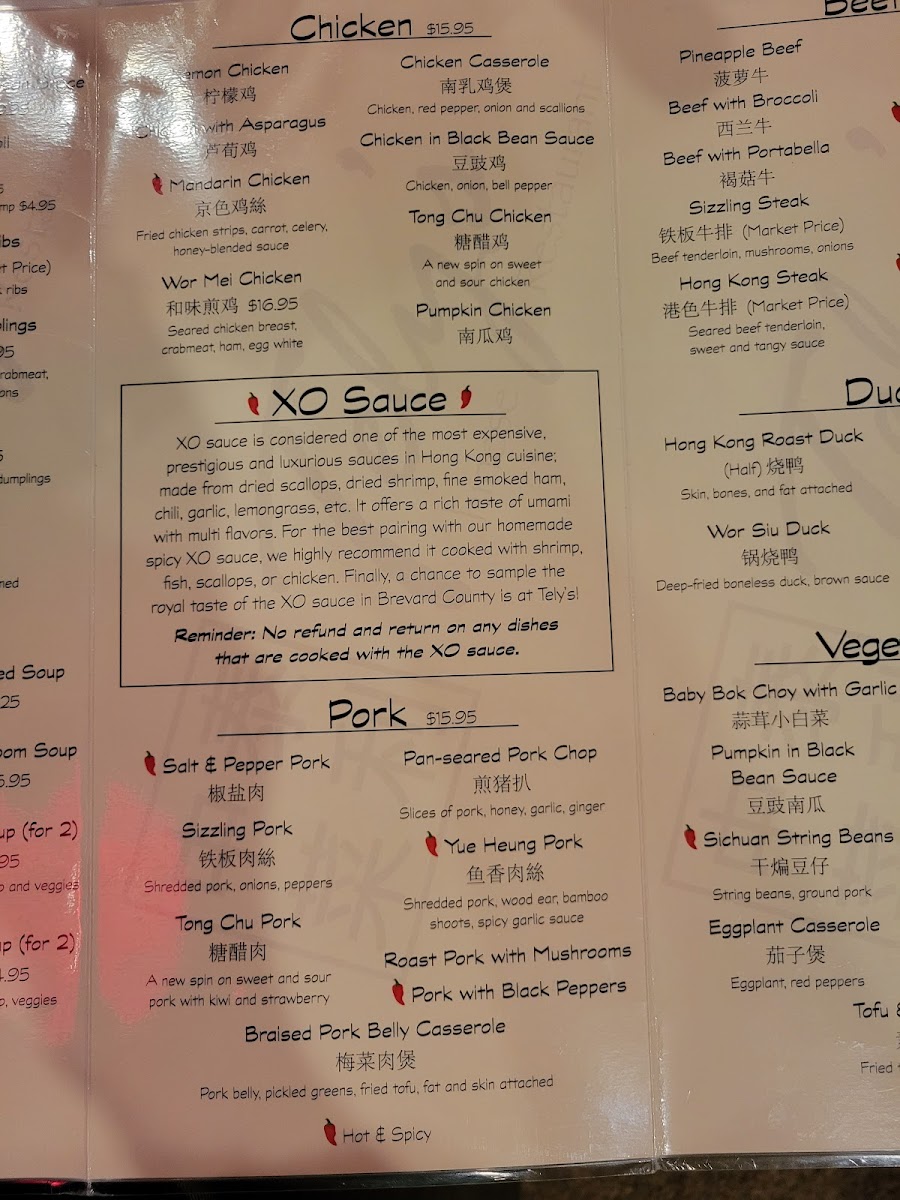 mp $4.95
ibs
t Price)
ribs
lings
95
rabmeat,
ons
dumplings
ed Soup
25
oom Soup
5.95
up (for 2)
95
p and veggies
up (for 2)
4.95
o, veggies
Chicken $15.95
emon Chicken
柠檬鸡
with Asparagus
芦荀鸡
Mandarin Chicken
京色鸡絲
Fried chicken strips, carrot, celery,
honey-blended sauce
Wor Mei Chicken
和味煎鸡 $16.95
Seared chicken breast,
crabmeat, ham, egg white
Chicken Casserole
南乳鸡煲
Chicken, red pepper, onion and scallions
Chicken in Black Bean Sauce
豆豉鸡
Chicken, onion, bell pepper
Tong Chu Chicken
糖醋鸡
A new spin on sweet
and sour chicken
Pumpkin Chicken
南瓜鸡
XO Sauce
XO sauce is considered one of the most expensive,
prestigious and luxurious sauces in Hong Kong cuisine;
made from dried scallops, dried shrimp, fine smoked ham,
chili, garlic, lemongrass, etc. It offers a rich taste of umami
with multi flavors. For the best pairing with our homemade
spicy XO sauce, we highly recommend it cooked with shrimp,
fish, scallops, or chicken. Finally, a chance to sample the
royal taste of the XO sauce in Brevard County is at Tely's!
Reminder: No refund and return on any dishes
that are cooked with the XO sauce.
Pork $15.95
Salt & Pepper Pork
椒盐肉
Sizzling Pork
铁板肉絲
Shredded pork, onions, peppers
Tong Chu Pork
糖醋肉
A new spin on sweet and sour
pork with kiwi and strawberry
Pan-seared Pork Chop
煎猪扒
Slices of pork, honey, garlic, ginger
Yue Heung Pork
鱼香肉絲
Shredded pork, wood ear, bamboo
shoots, spicy garlic sauce
Roast Pork with Mushrooms
Pork with Black Peppers
Braised Pork Belly Casserole
梅菜肉煲
Pork belly, pickled greens, fried tofu, fat and skin attached
Hot & Spicy
Beef
Pineapple Beef
菠萝牛
Beef with Broccoli
西兰牛
Beef with Portabella
褐菇牛
Sizzling Steak
铁板牛排 (Market Price)
Beef tenderloin, mushrooms, onions
Hong Kong Steak
港色牛排 (Market Price)
Seared beef tenderloin,
sweet and tangy sauce
Duc
Hong Kong Roast Duck
(Half) 烧鸭
Skin, bones, and fat attached
Wor Siu Duck
锅烧鸭
Deep-fried boneless duck, brown sauce
Vege
Baby Bok Choy with Garlic
蒜茸小白菜
Pumpkin in Black
Bean Sauce
豆豉南瓜
Sichuan String Beans
干煸豆仔
String beans, ground pork
Eggplant Casserole
茄子煲
Eggplant, red peppers
Tofu &
Fried